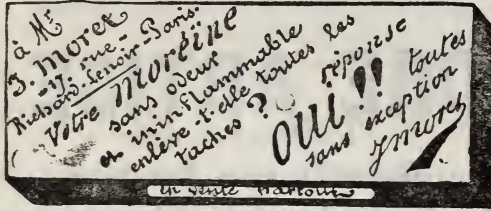 à Mr
J. Moret
-17. rue-
Richard-Lenoir-Paris.
Votre Moréïne
sans odeur
et ininflammable
enlève-t-elle toutes les
taches ? réponse
OUI !! toutes
sans exception
JMoret
en vente Partout